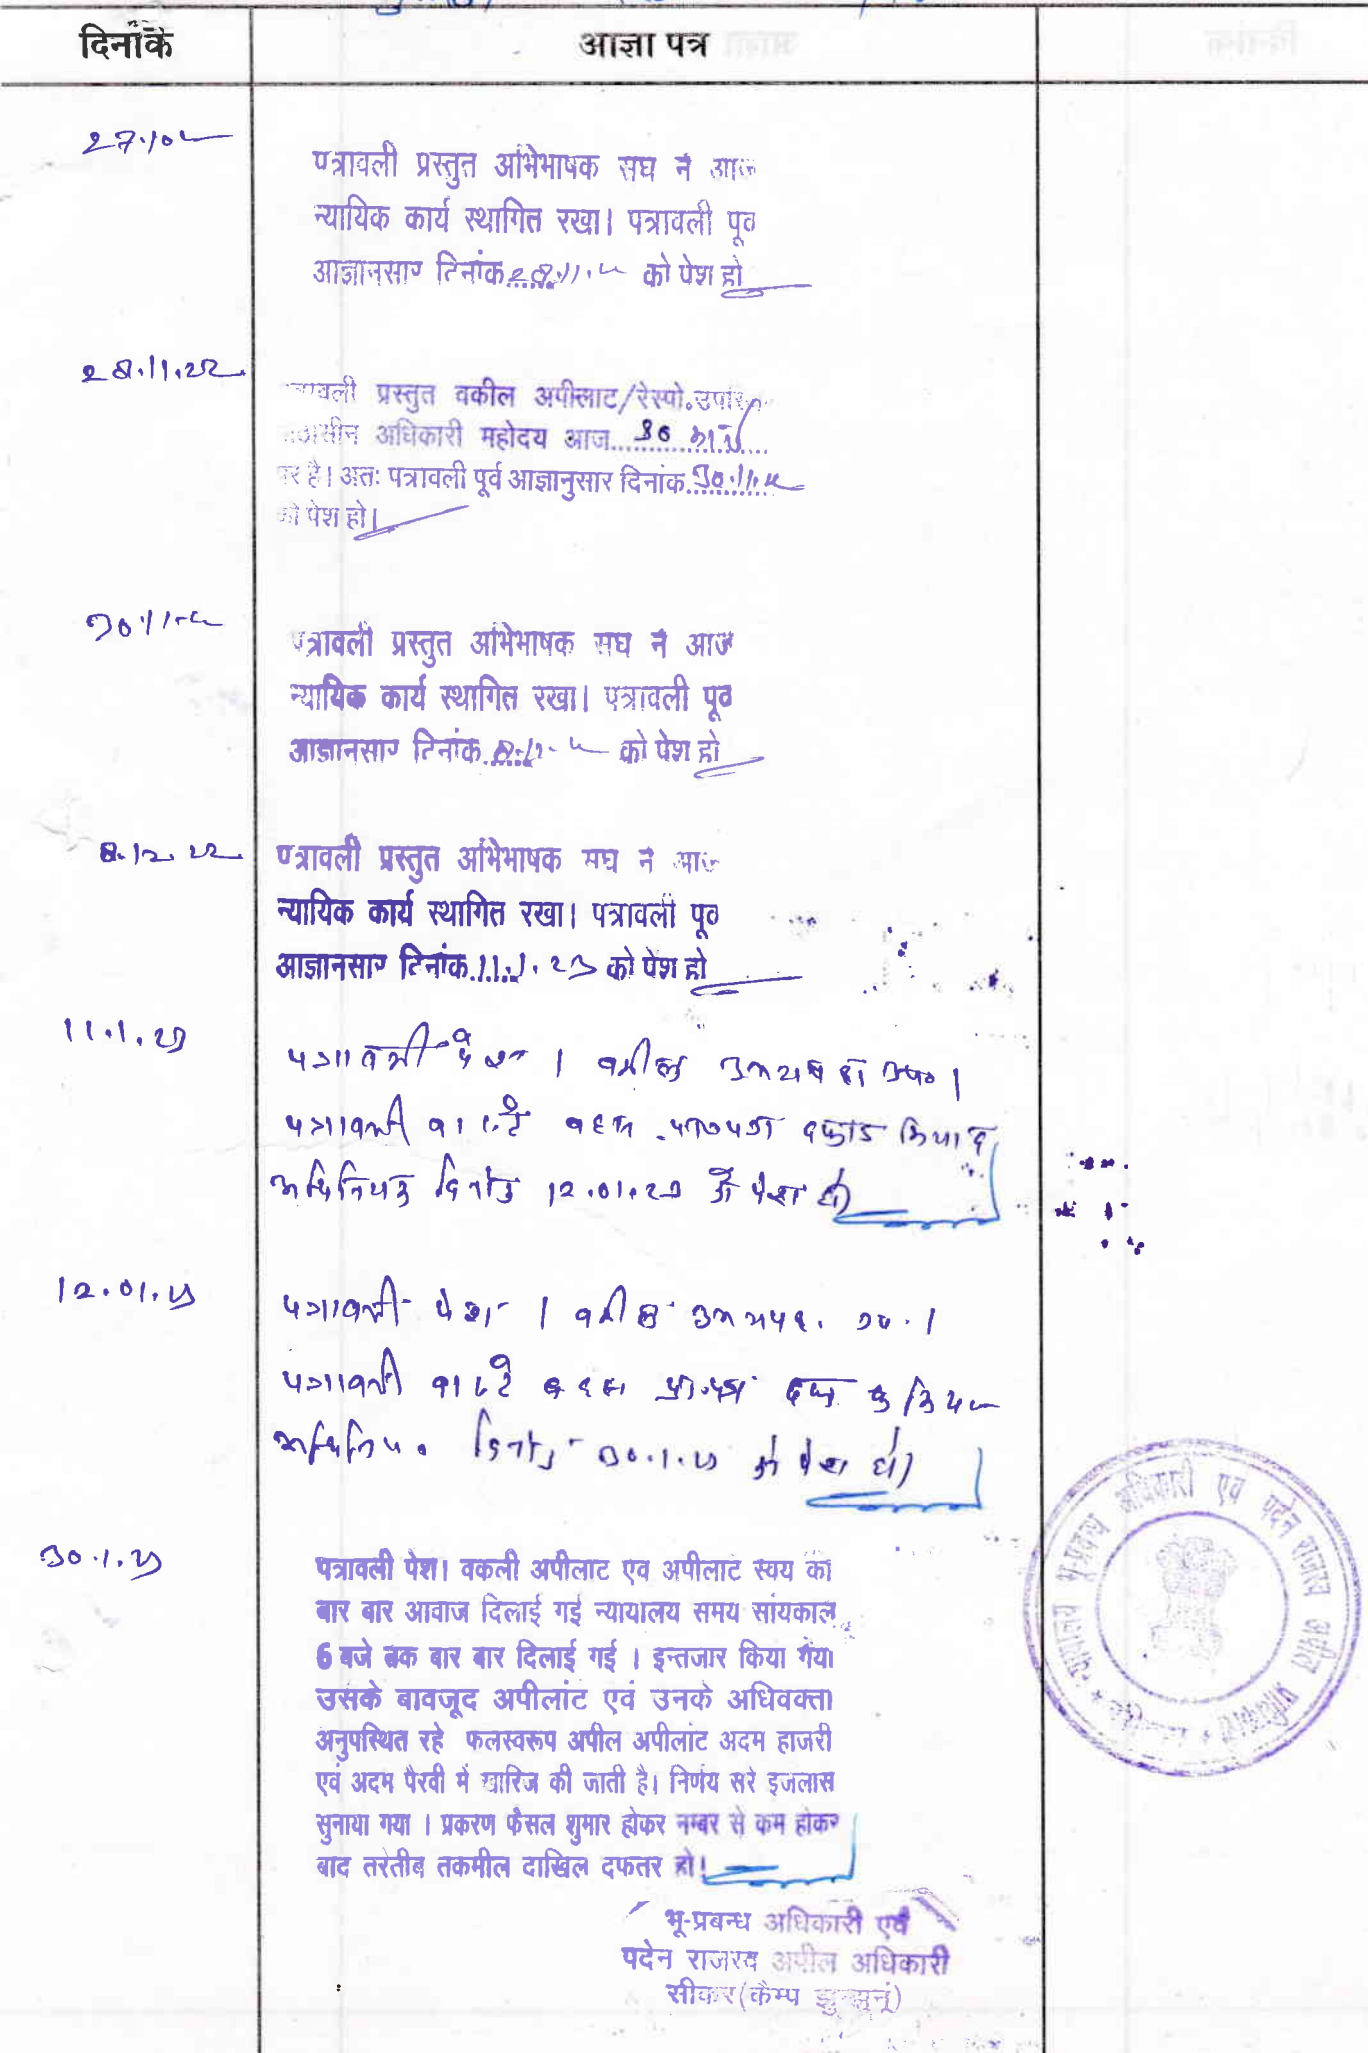 दिनांक आज्ञा पत्र
27.10.22
पत्रावली प्रस्तुत अभिभाषक संघ ने आज
न्यायिक कार्य स्थगित रखा। पत्रावली पूर्व
आज्ञानुसार दिनांक 28.11.22 को पेश हो
28.11.22
पत्रावली प्रस्तुत वकील अपीलांट/रेस्पो. उपस्थित
पीठासीन अधिकारी महोदय आज
पर है। अतः पत्रावली पूर्व आज्ञानुसार दिनांक 30.11.22
को पेश हो।
30.11.22
पत्रावली प्रस्तुत अभिभाषक संघ ने आज
न्यायिक कार्य स्थगित रखा। पत्रावली पूर्व
आज्ञानुसार दिनांक 8.12.22 को पेश हो
8.12.22
पत्रावली प्रस्तुत अभिभाषक संघ ने आज
न्यायिक कार्य स्थगित रखा। पत्रावली पूर्व
आज्ञानुसार दिनांक 11.1.23 को पेश हो
11.1.23
पत्रावली पेश। वकील उभयपक्ष उप०।
पत्रावली वास्ते बहस मियाद
अधिनियम दिनांक 12.01.23 को पेश हो
12.01.23
पत्रावली पेश। वकील उभयपक्ष उप.।
पत्रावली वास्ते बहस प्रा.पत्र
दिनांक 30.1.23 को पेश हो।
30.1.23
पत्रावली पेश। वकली अपीलाट एवं अपीलाट स्वय को
बार बार आवाज दिलाई गई न्यायालय समय सांयकाल
6 बजे तक बार बार दिलाई गई । इन्तजार किया गया
उसके बावजूद अपीलांट एवं उनके अधिवक्ता
अनुपस्थित रहे फलस्वरूप अपील अपीलांट अदम हाजरी
एवं अदम पैरवी में खारिज की जाती है। निर्णय सरे इजलास
सुनाया गया । प्रकरण फैसल शुमार होकर नम्बर से कम होकर
बाद तरतीब तकमील दाखिल दफतर हो।
भू-प्रबन्ध अधिकारी एवं
पदेन राजस्व अपील अधिकारी
सीकर(कैम्प झुन्झुनूं)
न्यायालय भू-प्रबन्ध अधिकारी एवं पदेन राजस्व अपील